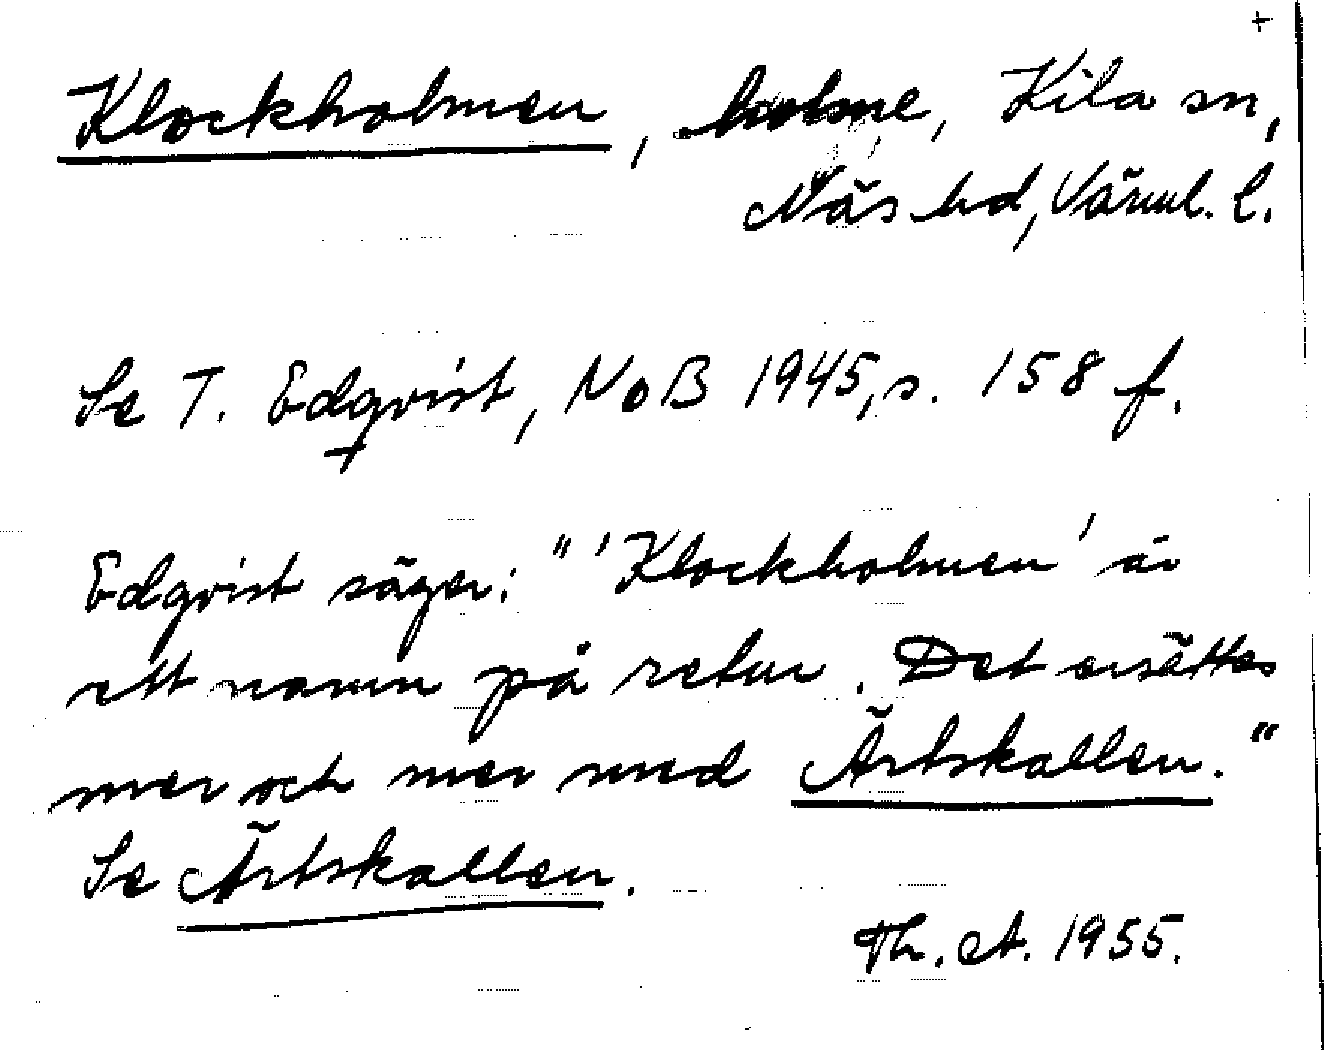 +
Klockholmen, holme, Kila sn,
Näs hd, Värml. l.
Se T. Edqvist, NoB 1945, s. 158 f.
Edqvist säger: "'Klockholmen' är
ett namn på retur. Det ersättes
mer och mer med Ärtskallen."
Se Ärtskallen.
Th. A. 1955.